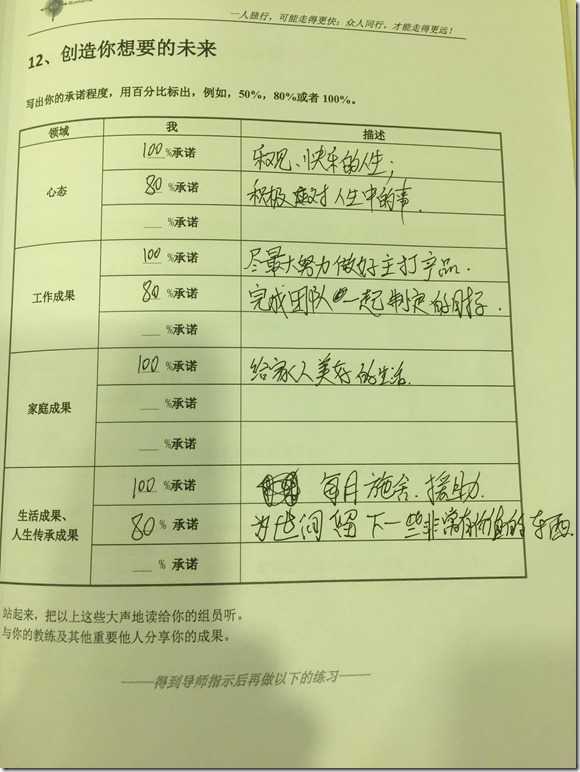 一人独行，可能走得更快；众人同行，才能走得更远！
12、创造你想要的未来
写出你的承诺程度，用百分比标出，例如，50%，80%或者 100%。
领域 我 描述
100 %承诺 乐观、快乐的人生；
心态 80 %承诺 积极应对人生中的事.
___ %承诺
100 %承诺 尽最大努力做好主打产品.
工作成果 80 %承诺 完成团队一起制定的目标.
___ %承诺
100 %承诺 给家人美好的生活.
家庭成果 ___ %承诺
___ %承诺
100 %承诺 每月施舍.援助.
生活成果、
人生传承成果 80 % 承诺 为世间留下一些非常有价值的东西.
___ % 承诺
站起来，把以上这些大声地读给你的组员听。
与你的教练及其他重要他人分享你的成果。
——得到导师指示后再做以下的练习——